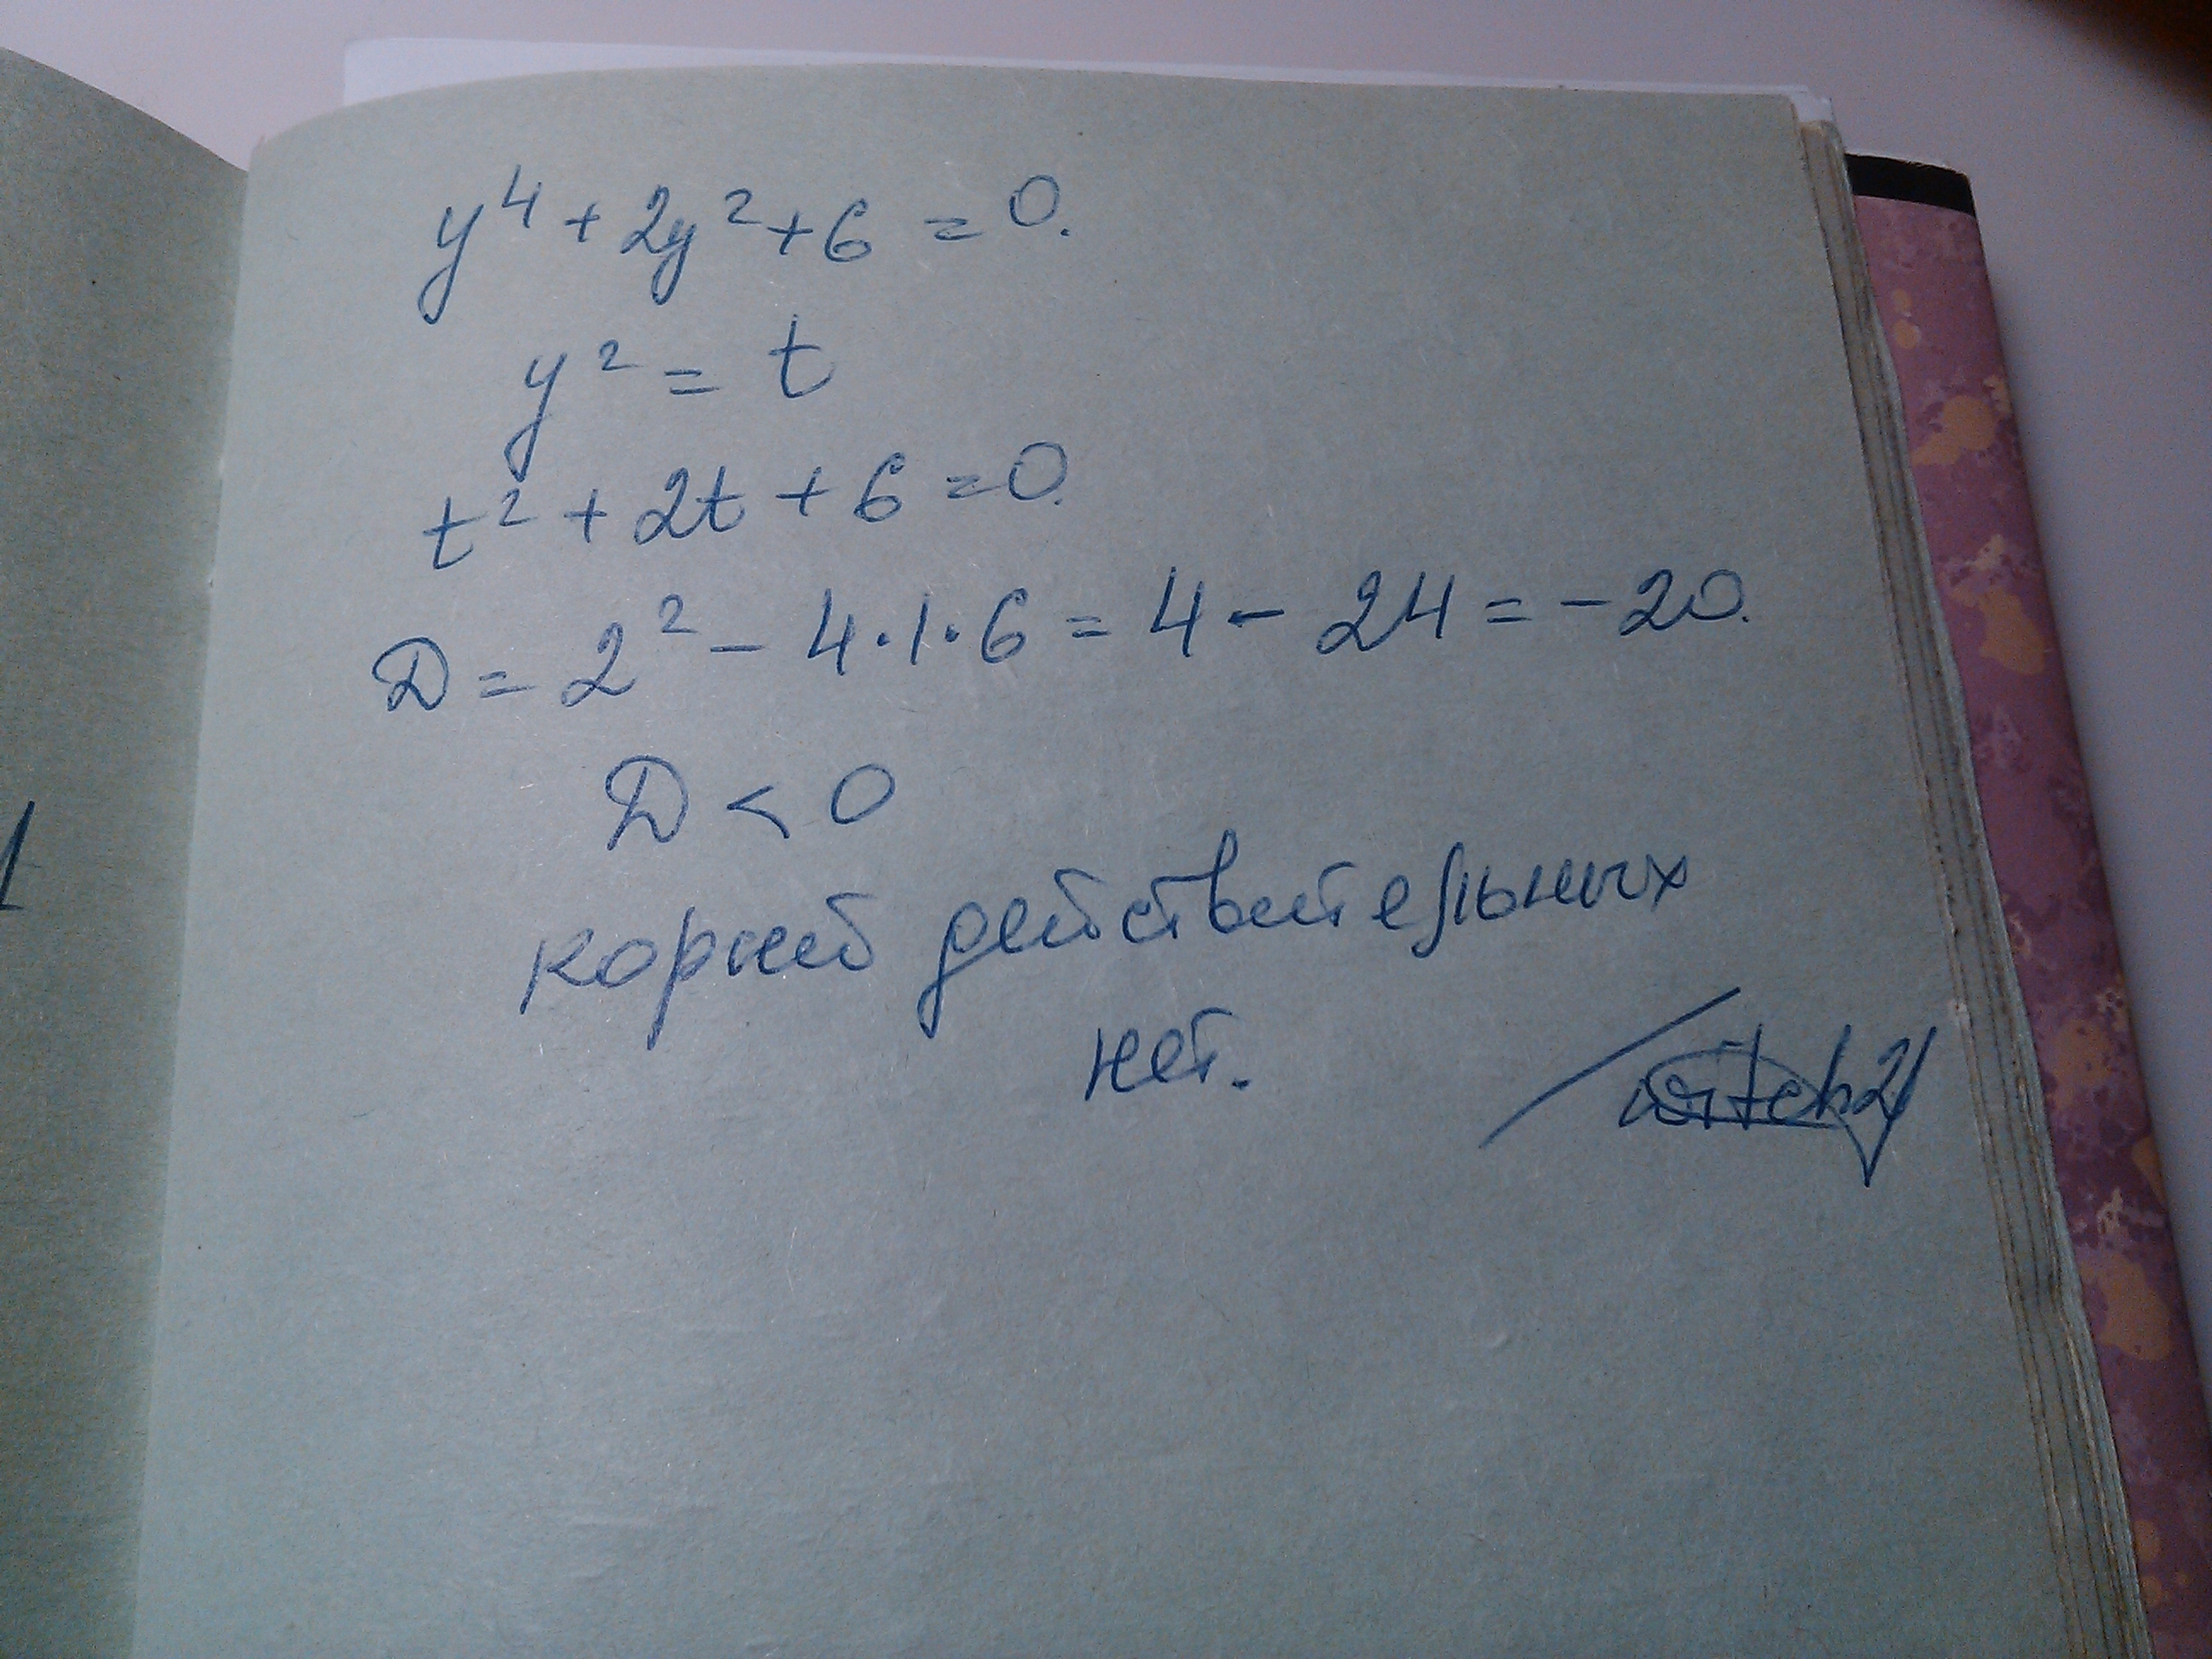 y⁴ + 2y² + 6 = 0.
y² = t
t² + 2t + 6 = 0.
D = 2² - 4·1·6 = 4 - 24 = -20.
D < 0
корней действительных
нет.
witch21